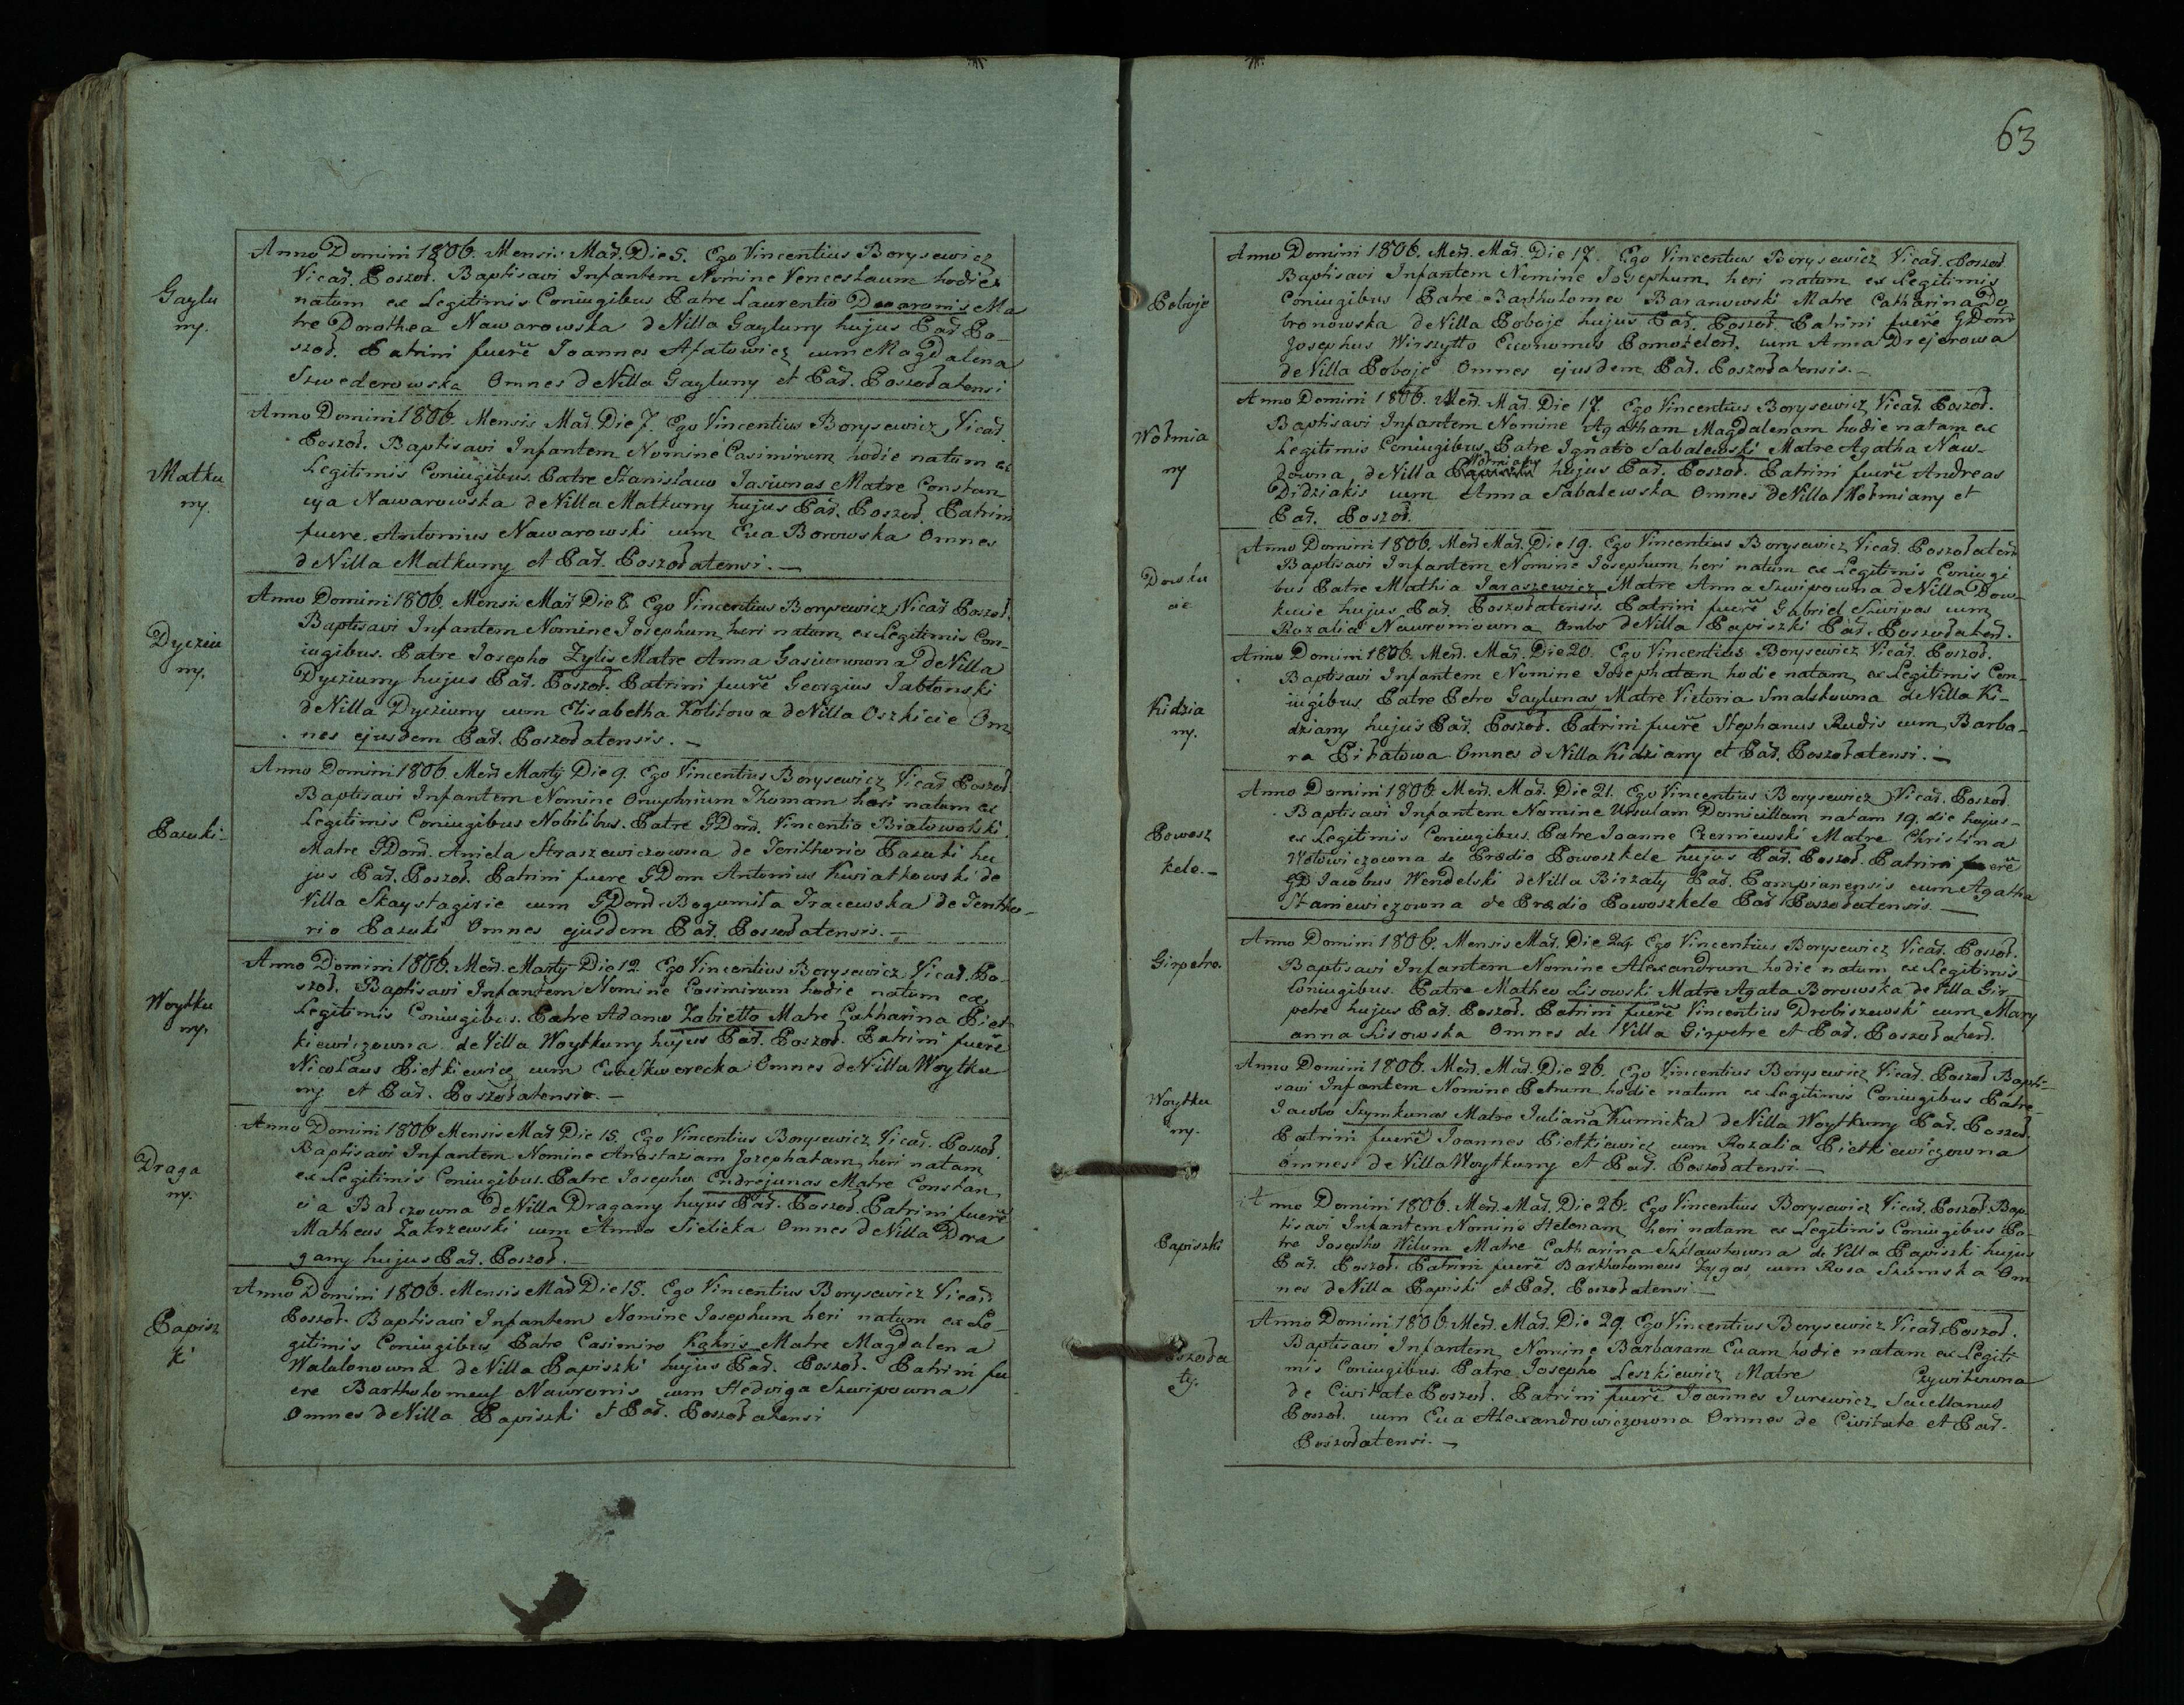 Gaylu
ny.
Anno Domini 1806. Mensis Mar. Die 5. Ego Vincentius Borysewicz
Vicar. Poszoł. Baptisavi Infantem Nomine Venceslaum hodie
natum ex Legitimis Coniugibus Patre Laurentio Ma
tre Dorothea Nawarowska de Villa Gayluny hujus Par. Po-
szoł. Patrini fuere Joannes Afatowicz cum Magdalena
Szwederowska Omnes de Villa Gayluny et Par. Poszołatensi
Matku
ny.
Anno Domini 1806. Mensis Mar. Die 7. Ego Vincentius Borysewicz Vicar.
Poszoł. Baptisavi Infantem Nomine Casimirum hodie natum ex
Legitimis Coniugibus. Patre Stanislauo Jasiunas Matre Constan
cya Nawarowska de Villa Matkuny hujus Par. Poszoł. Patrini
fuere. Antonius Nawarowski cum Eva Borowska Omnes
de Villa Matkuny et Par. Poszołatensi. —
Dycziu
ny.
Anno Domini 1806. Mensis Mar Die 8 Ego Vincentius Borysewicz Vicar Poszoł.
Baptisavi Infantem Nomine Josephum heri natum ex Legitimis Con-
iugibus. Patre Josepho Zylis Matre Anna Gasiunowna de Villa
Dycziuny hujus Par. Poszoł. Patrini fuere Georgius Jabłonski
de Villa Dycziuny cum Elisabetha Kolitowa de Villa Oszkicie Om
nes ejusdem Par. Poszołatensis. —
Pazuki-
Anno Domini 1806. Men Martÿ Die 9. Ego Vincentius Borysewicz Vicar Poszoł.
Baptisavi Infantem Nomine Onuphrium Thomam heri natum ex
Legitimis Coniugibus Nobilibus. Patre GDom. Vincentio Białowolski
Matre GDom. Aniela Straszewiczowna de Territorio Pazuki hu
jus Par. Poszoł. Patrini fuere GDom Antonius Kwiatkowski de
Villa Skaystagirie cum GDom. Bogumiła de Territo-
rio Pazuki Omnes ejusdem Par. Poszołatensis. —
Woytku
ny.
Anno Domini 1806. Men. Martÿ Die 12. Ego Vincentius Borysewicz Vicar. Po-
szoł. Baptisavi Infantem Nomine Casimirum hodie natum ex
Legitimis Coniugibus. Patre Adamo Zabietto Matre Catharina Piet
kiewiczowna de Villa Woytkuny hujus Par. Poszoł. Patrini fuere
Nicolaus Pietkiewicz cum Eva Skworecka Omnes de Villa Woytku
ny et Par. Poszołatensi. —
Draga
ny.
Anno Domini 1806 Mensis Mar Die 15. Ego Vincentius Borysewicz Vicar. Poszoł.
Baptisavi Infantem Nomine Anastaziam Jozephatam heri natam
ex Legitimis Coniugibus. Patre Josepho Endrejunas Matre Constan
cia Barczowna de Villa Dragany hujus Par. Poszoł. Patrini fuere
Matheus Zakrzewski cum Anna Sielicka Omnes de Villa Dra
gany hujus Par. Poszoł. —
Papisz
ki
Anno Domini 1806. Mensis Mar Die 15. Ego Vincentius Borysewicz Vicar
Poszoł. Baptisavi Infantem Nomine Josephum heri natum ex Le-
gitimis Coniugibus Patre Casimiro Kakris Matre Magdalena
Walulonowna de Villa Papiszki hujus Par. Poszoł. Patrini fu
ere Bartholomeus Nawronis cum Hedviga Szwipowna
Omnes de Villa Papiszki et Par. Poszołatensi
63
Poboje
Anno Domini 1806. Men. Mar. Die 17. Ego Vincentius Borysewicz Vicar. Poszoł
Baptisavi Infantem Nomine Josephum, heri natum ex Legitimis
Coniugibus Patre Bartholomeo Baranowski Matre Catharina Do
bronowska de Villa Poboje hujus Par. Poszoł. Patrini fuere GDom
Josephus Wirszytto Economus cum Anna Drejerowa
de Villa Poboje Omnes ejusdem Par. Poszołatensis. —
Wołmia
ny
Anno Domini 1806. Men. Mar. Die 17. Ego Vincentius Borysewicz Vicar. Poszoł.
Baptisavi Infantem Nomine Agatham Magdalenam hodie natam ex
Legitimis Coniugibus. Patre Ignatio Sabalewski Matre Agatha Naw-
downa de Villa Wołmiany hujus Par. Poszoł. Patrini fuere Andreas
Didziakis cum Anna Sabalewska Omnes de Villa Wołmiany et
Par. Poszoł.
Dowku
cie
Anno Domini 1806. Men Mar. Die 19. Ego Vincentius Borysewicz Vicar. Poszołaten
Baptisavi Infantem Nomine Josephum heri natum ex Legitimis Coniugi
bus Patre Mathia Jaraszewicz Matre Anna Szwipowna de Villa Dow-
kucie hujus Par. Poszołatensis. Patrini fuere Gabriel Szwipas cum
Rozalia Nawroniowna Ambo de Villa Papiszki Par. Poszołaten.
Kidzia
ny.
Anno Domini 1806. Men. Mar. Die 20. Ego Vincentius Borysewicz Vicar. Poszoł.
Baptisavi Infantem Nomine Josephatam hodie natam, ex Legitimis Con-
iugibus Patre Petro Gaylunas Matre Victoria Smalskowna de Villa Ki-
dziany hujus Par. Poszoł. Patrini fuere Stephanus Rudis cum Barba-
ra Omnes de Villa Kidziany et Par. Poszołatensi. —
Powosz
kele. —
Anno Domini 1806 Men. Mar. Die 21. Ego Vincentius Borysewicz Vicar. Poszoł.
Baptisavi Infantem Nomine Ursulam Domicillam natam 19. die hujus-
ex Legitimis Coniugibus. Patre Joanne Czerniewski Matre Christina
Wołowiczowna de Prædio Powoszkele hujus Par. Poszoł. Patrini fuere
GD Jacobus Wendelski de Villa Birzaty Par. Pompianensis cum Agatha
Staniewiczowna de Prædio Powoszkele Par Poszołatensis. —
Girpetro.
Anno Domini 1806. Mensis Mar. Die 24 Ego Vincentius Borysewicz Vicar. Poszoł.
Baptisavi Infantem Nomine Alexandrum hodie natum ex Legitimis
Coniugibus. Patre Matheo Lisowski Matre Agata Borowska de Villa Gir
petre hujus Par. Poszoł. Patrini fuere Vincentius Drobiszewski cum Mary
anna Lisowska Omnes de Villa Girpetre et Par. Poszołaten.
Woytku
ny.
Anno Domini 1806. Men. Mar. Die 26. Ego Vincentius Borysewicz Vicar. Poszoł Bapti-
savi Infantem Nomine Petrum hodie natum ex Legitimis Coniugibus Patre-
Jacobo Szymkunas Matre Julianna Kunicka de Villa Woytkuny Par. Poszoł.
Patrini fuere Joannes Pietkiewicz cum Rozalia Pietkiewiczowna
omnes de Villa Woytkuny et Par. Poszołatensi. —
Papiszki
Anno Domini 1806. Men. Mar. Die 26. Ego Vincentius Borysewicz Vicar. Poszoł. Bap-
tisavi Infantem Nomine Helenam, heri natam ex Legitimis Coniugibus Pa-
tre Josepho Wilum Matre Catharina de Villa Papiszki hujus
Par. Poszoł. Patrini fuere Bartholomeus Zygas cum Rosa Szumska Om
nes de Villa Papiszki et Par. Poszołatensi —
Poszoła
ty.
Anno Domini 1806. Men. Mar. Die 29. Ego Vincentius Borysewicz Vicar. Poszoł.
Baptisavi Infantem Nomine Barbaram Evam hodie natam ex Legiti
mis Coniugibus. Patre Josepho Leszkiewicz Matre Czywitowna
de Civitate Poszoł. Patrini fuere Joannes Jurewicz Sacellanus
Poszoł. cum Eva Alexandrowiczowna Omnes de Civitate et Par.
Poszołatensi. —